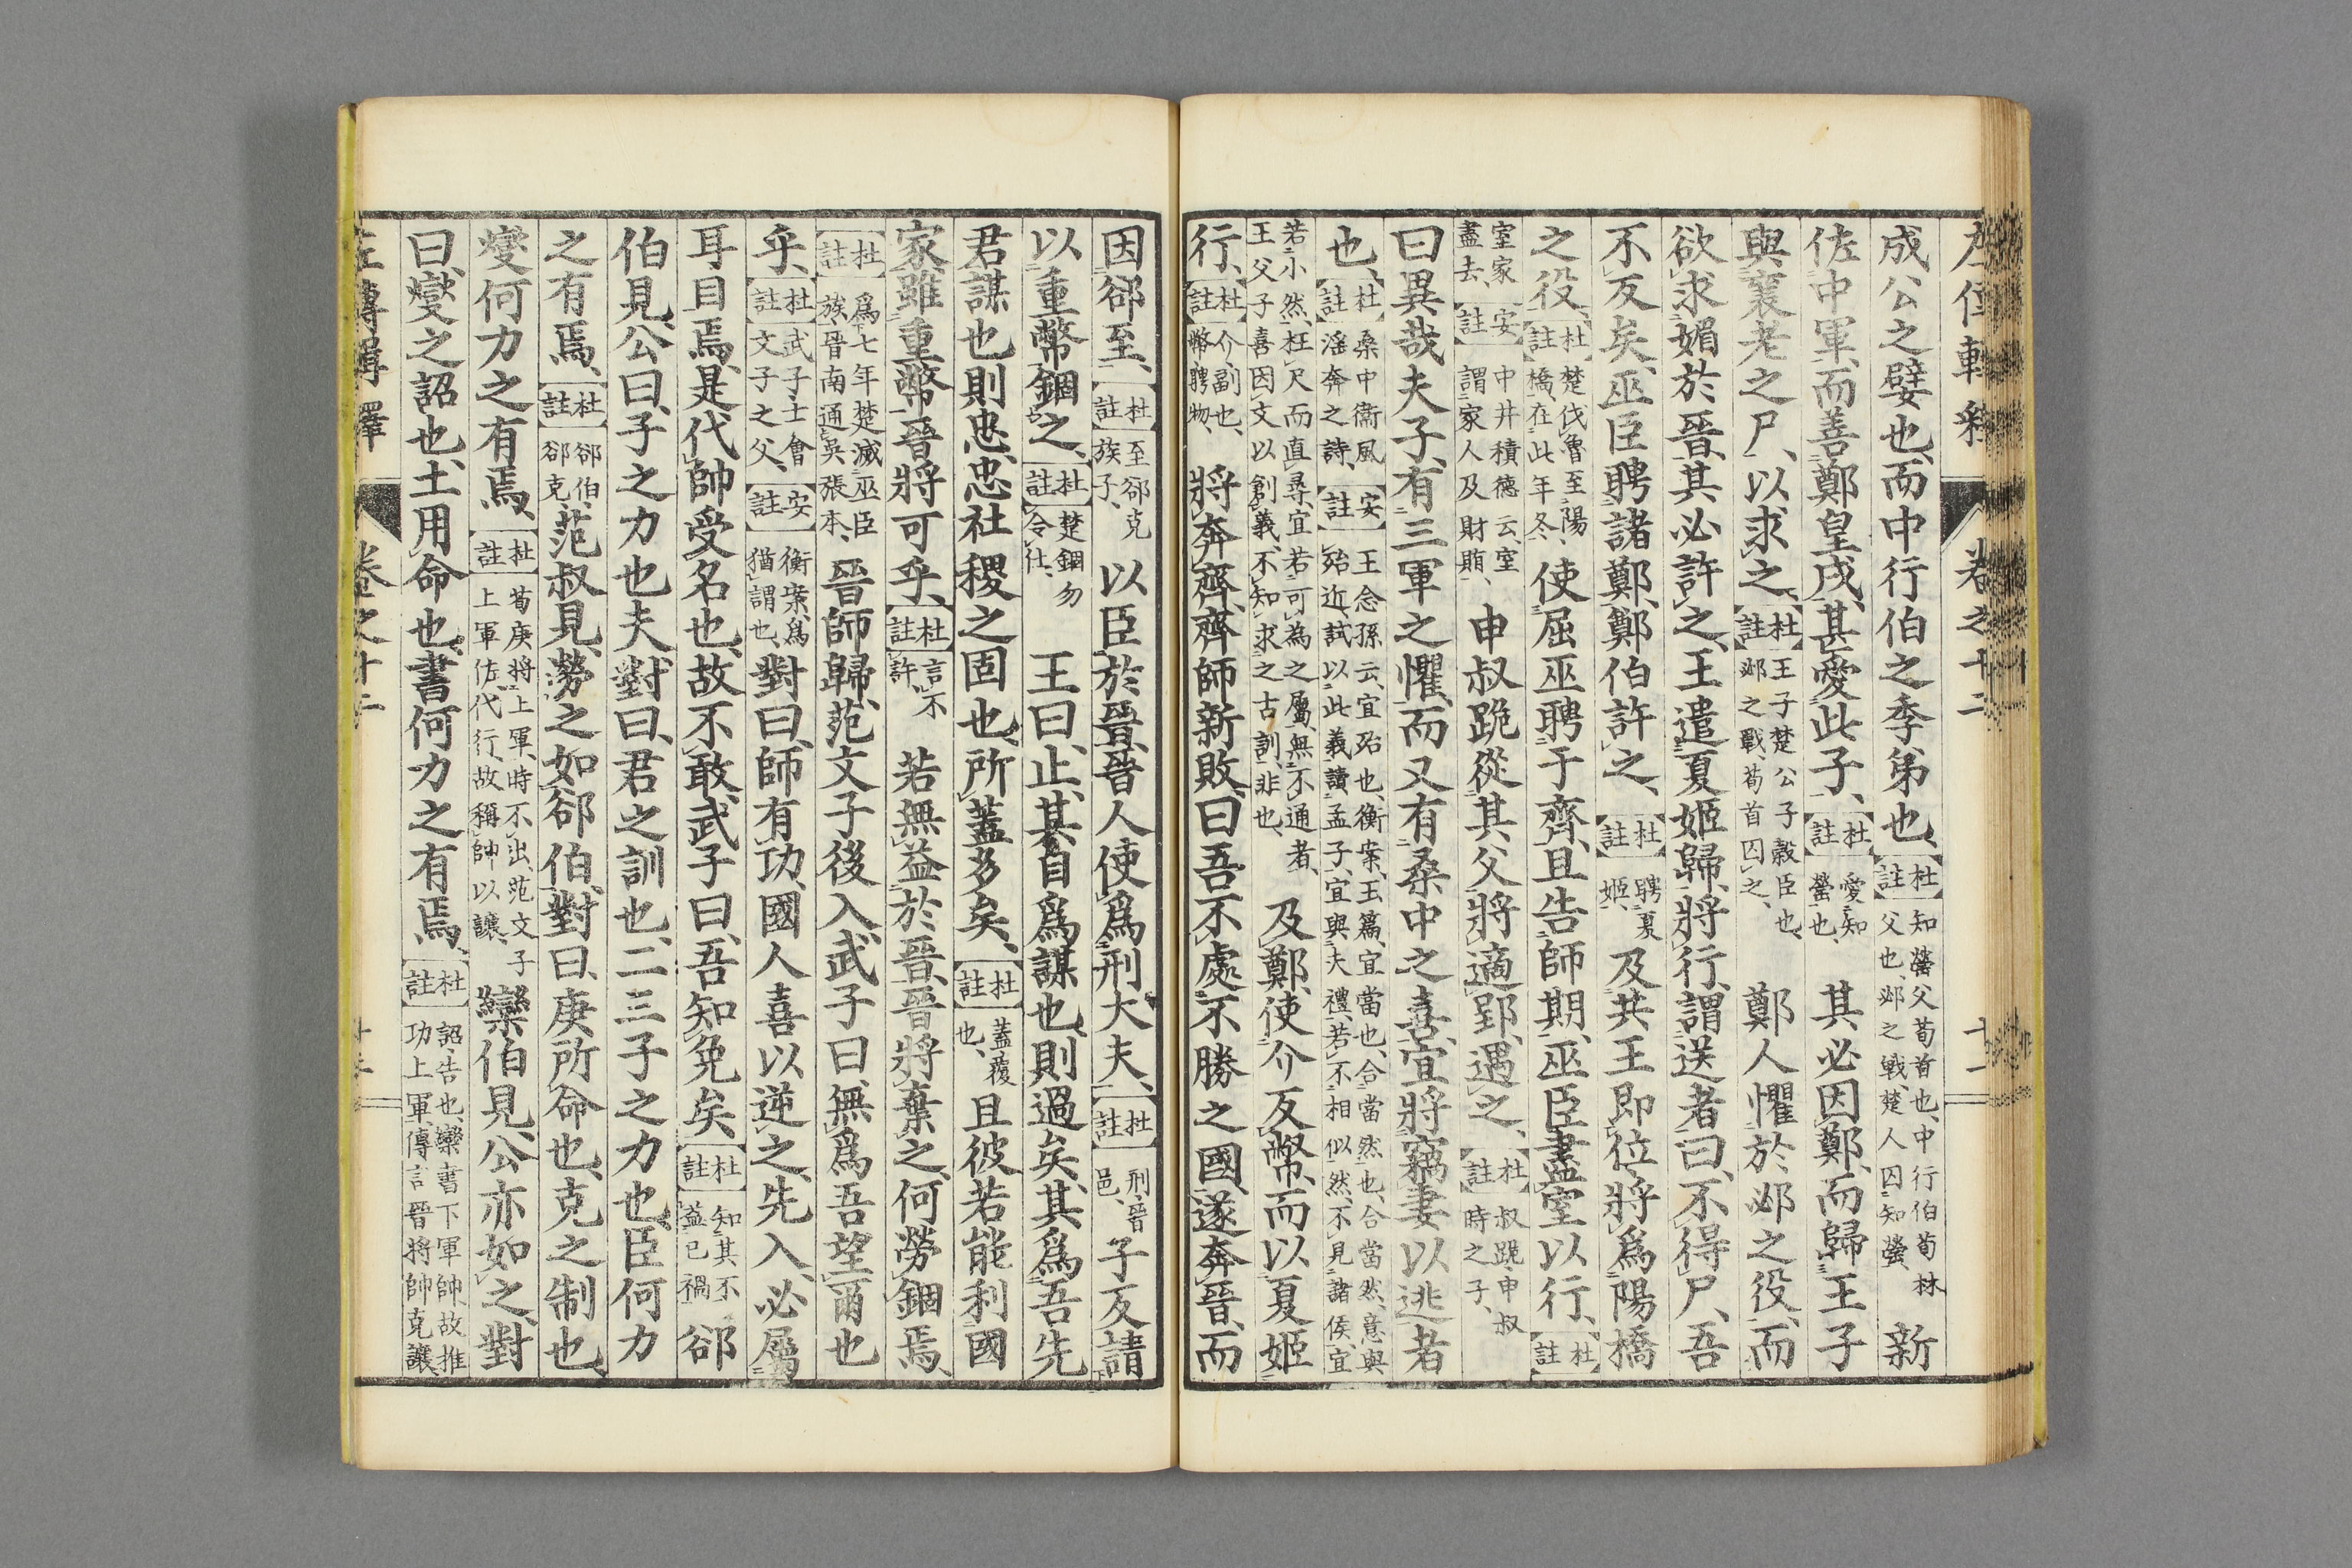 左傳輯釋 卷之十二 十一
成公之嬖也、而中行伯之季弟也、【杜註】知罃父荀首也、中行伯荀林父也、邲之戰、楚人囚知罃、新
佐中軍、而善鄭皇戌、甚愛此子、【杜註】愛知罃也、其必因鄭、而歸王子
與襄老之尸、以求之、【杜註】王子楚公子穀臣也、邲之戰、荀首囚之、鄭人懼於邲之役、而
欲求媚於晉、其必許之、王遣夏姬歸、將行、謂送者曰、不得尸、吾
不反矣、巫臣聘諸鄭、鄭伯許之、【杜註】聘夏姬、及共王即位、將爲陽橋
之役、【杜註】楚伐魯至陽橋、在此年冬、使屈巫聘于齊、且告師期、巫臣盡室以行、【杜註】
室家盡去、【安註】中井積德云、室謂家人及財賄、申叔跪從其父將適郢、遇之、【杜註】叔跪、申叔時之子、
曰異哉夫子、有三軍之懼、而又有桑中之喜、宜將竊妻以逃者
也、【杜註】桑中衞風淫奔之詩、【安註】王念孫云、宜殆也、衡案、玉篇、宜當也、合當然也、合當然、意與殆近、試以此義讀孟子、宜與夫禮、若不相似然、不見諸侯、宜
若小然、枉尺而直尋、宜若可為之屬、無不通者、王父子喜因文以創義、不知求之古訓、非也、及鄭、使介反幣、而以夏姬
行、【杜註】介副也、幣聘物、將奔齊、齊師新敗、曰吾不處不勝之國、遂奔晉、而
因郤至、【杜註】至郤克族子、以臣於晉、晉人使爲刑大夫、【杜註】刑、晉邑、子反請
以重幣錮之、【杜註】楚錮勿令仕、王曰、止、其自爲謀也、則過矣、其爲吾先
君謀也、則忠、忠、社稷之固也、所蓋多矣、【杜註】蓋覆也、且彼若能利國
家、雖重幣、晉將可乎、【杜註】言不許、若無益於晉、晉將棄之、何勞錮焉、
【杜註】爲七年楚滅巫臣族、晉南通吳張本、晉師歸、范文子後入、武子曰、無爲吾望爾也
乎、【杜註】武子士會文子之父、【安註】衡案、爲猶謂也、對曰、師有功、國人喜以逆之、先入、必屬
耳目焉、是代帥受名也、故不敢、武子曰、吾知免矣、【杜註】知其不益己禍、郤
伯見、公曰、子之力也夫、對曰、君之訓也、二三子之力也、臣何力
之有焉、【杜註】郤伯、郤克、范叔見、勞之如郤伯、對曰、庚所命也、克之制也、
燮何力之有焉、【杜註】荀庚將上軍、時不出、范文子上軍佐代行、故稱帥以讓、欒伯見、公亦如之、對
曰、燮之詔也、士用命也、書何力之有焉、【杜註】詔、告也、欒書下軍帥、故推功上軍、傳言晉將帥克讓、
左傳輯釋 卷之十二